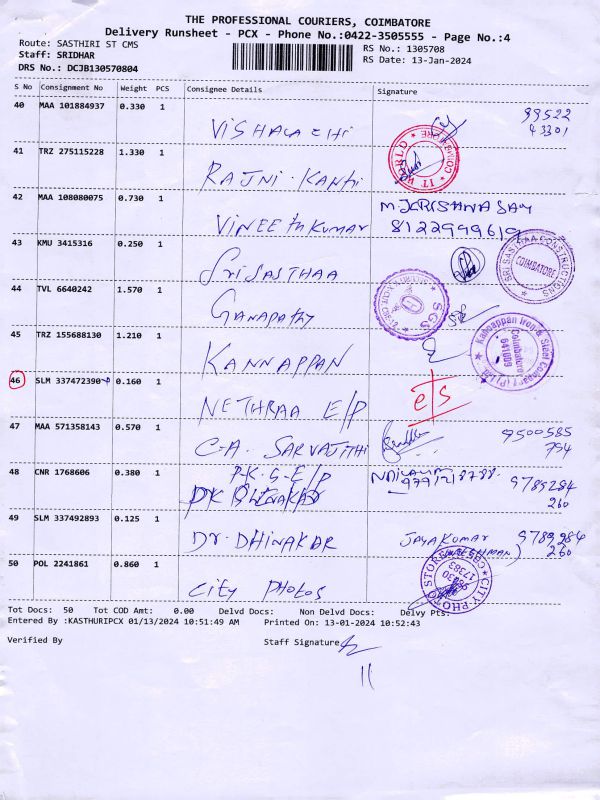 THE PROFESSIONAL COURIERS, COIMBATORE
Delivery Runsheet - PCX - Phone No.:0422-3505555 - Page No.:4
Route: SASTHIRI ST CMS
RS No.: 1305708
Staff: SRIDHAR
RS Date: 13-Jan-2024
DRS No.: DCJB130570804
S No Consignment No Weight PCS Consignee Details Signature
40 MAA 101884937 0.330 1
99522
43301
41 TRZ 275115228 1.330 1
IT WORLD
RAJNI KANth
42 MAA 108080075 0.730 1
VINEEthKUMAR
8122999619
43 KMU 3415316 0.250 1
SRI SASTHAA CONSTRUCTIONS
COIMBATORE
SRI SASTHAA
44 TVL 6640242 1.570 1
SGS
GANAPATHY
45 TRZ 155688130 1.210 1
Kannappan Iron & Steel Company (P) Ltd.
Coimbatore
641009
KANNAPPAN
46 SLM 337472390 0.160 1
NETHRAA E/P
47 MAA 571358143 0.570 1
9500585
794
C-A. SARVAJITHI
48 CNR 1768606 0.380 1
P.K.S-E/P
9789284
260
49 SLM 337492893 0.125 1
JAYAKUMAR 9789284
260
Dr. DHINAKAR
50 POL 2241861 0.860 1
CITY PHOTO STORES
98430
17383
CITY PHOTOS
Tot Docs: 50 Tot COD Amt: 0.00 Delvd Docs: Non Delvd Docs: Delvy Pts:
Entered By :KASTHURIPCX 01/13/2024 10:51:49 AM Printed On: 13-01-2024 10:52:43
Verified By Staff Signature